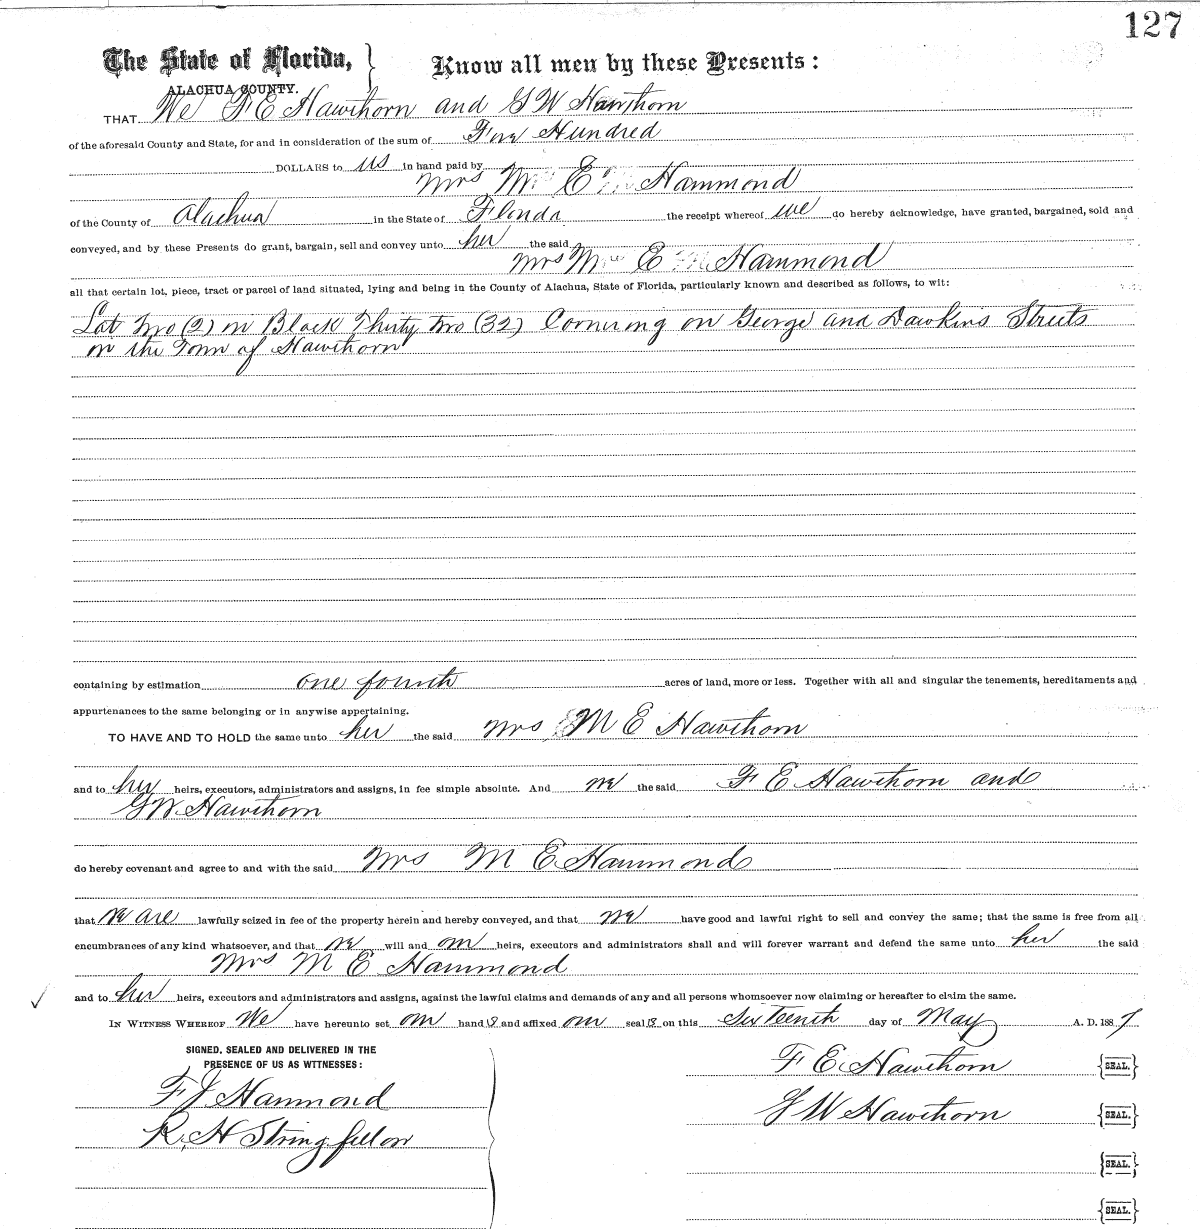 127
The State of Florida, } Know all men by these Presents:
ALACHUA COUNTY.
THAT We F E Hawthorn and G W Hawthorn
of the aforesaid County and State, for and in consideration of the sum of Five Hundred
DOLLARS to us in hand paid by
Mrs M E Hammond
of the County of Alachua in the State of Florida the receipt whereof we do hereby acknowledge, have granted, bargained, sold and
conveyed, and by these Presents do grant, bargain, sell and convey unto her the said
Mrs M E Hammond
all that certain lot, piece, tract or parcel of land situated, lying and being in the County of Alachua, State of Florida, particularly known and described as follows, to wit:
Lot Two (2) in Block Thirty two (32) Cornering on George and Dawkins Streets
in the Town of Hawthorn
containing by estimation one fourth acres of land, more or less. Together with all and singular the tenements, hereditaments and
appurtenances to the same belonging or in anywise appertaining.
TO HAVE AND TO HOLD the same unto her the said Mrs M E Hawthorn
and to her heirs, executors, administrators and assigns, in fee simple absolute. And we the said F E Hawthorn and
G W Hawthorn
do hereby covenant and agree to and with the said Mrs M E Hammond
that we are lawfully seized in fee of the property herein and hereby conveyed, and that we have good and lawful right to sell and convey the same; that the same is free from all
encumbrances of any kind whatsoever, and that we will and our heirs, executors and administrators shall and will forever warrant and defend the same unto her the said
Mrs M E Hammond
and to her heirs, executors and administrators and assigns, against the lawful claims and demands of any and all persons whomsoever now claiming or hereafter to claim the same.
IN WITNESS WHEREOF We have hereunto set our hand s and affixed our seal s on this Sixteenth day of May A. D. 1887
SIGNED, SEALED AND DELIVERED IN THE
PRESENCE OF US AS WITNESSES:
F E Hawthorn {SEAL.}
F J Hammond
G W Hawthorn {SEAL.}
R. H Stringfellow
{SEAL.}
{SEAL.}